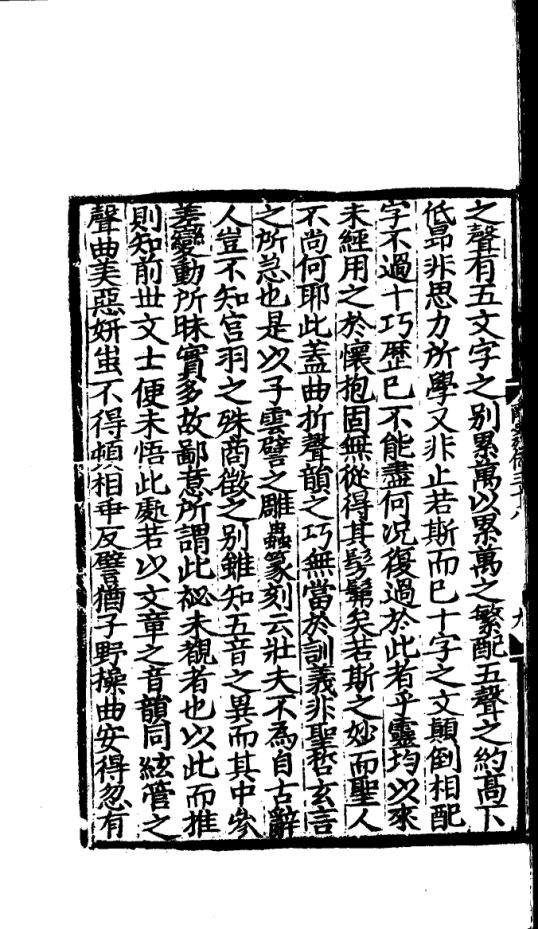 之聲有五文字之别累萬以累萬之繁配五聲之約高下
低昻非思力所學又非止若斯而已十字之文顛倒相配
字不過十巧歷已不能盡何况復過於此者乎靈均以來
未經用之於懷抱固無從得其髣髴矣若斯之妙而聖人
不尚何耶此蓋曲折聲韻之巧無當於訓義非聖哲玄言
之所急也是以子雲譬之雕蟲篆刻云壯夫不為自古辭
人豈不知宫羽之殊商徵之别雖知五音之異而其中參
差變動所昧實多故鄙意所謂此祕未覩者也以此而推
則知前世文士便未悟此處若以文章之音韻同絃管之
聲曲美惡妍蚩不得頓相乖反譬猶子野操曲安得忽有